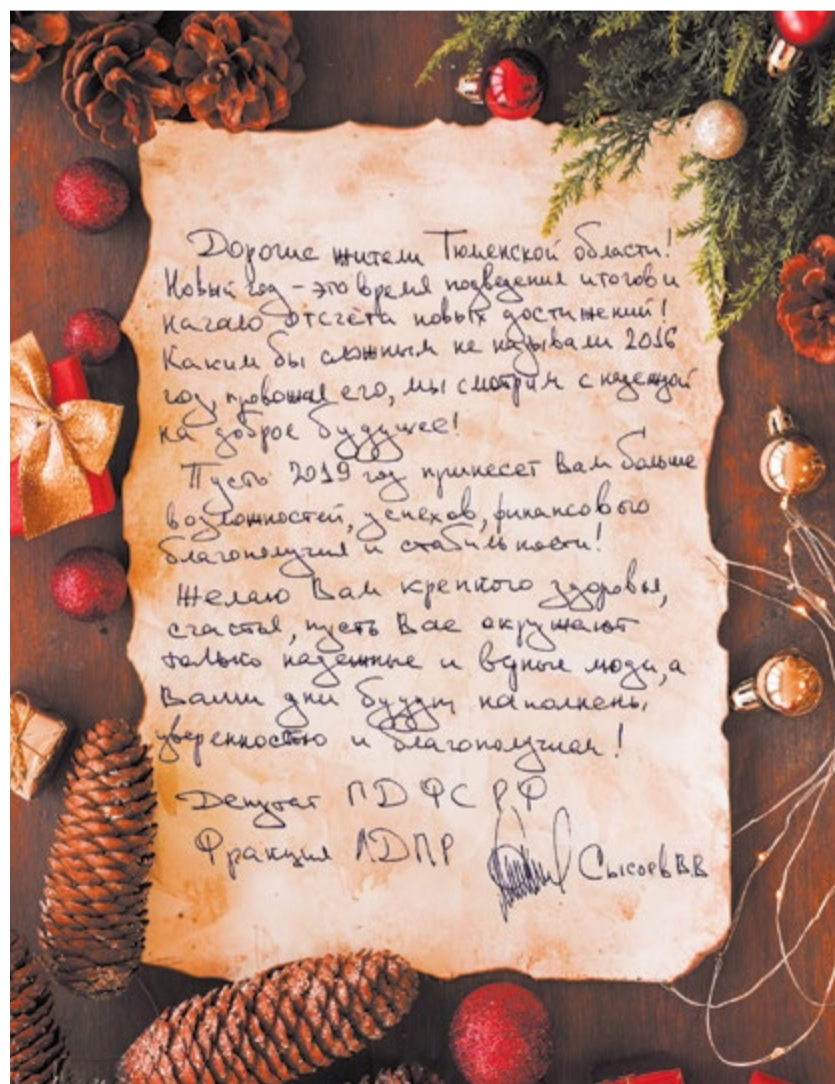 Дорогие жители Тюменской области!
Новый год – это время подведения итогов и
начало отсчёта новых достижений!
Каким бы сложным не называли 2016
год, провожая его, мы смотрим с надеждой
на доброе будущее!
Пусть 2019 год принесет Вам больше
возможностей, успехов, финансового
благополучия и стабильности!
Желаю Вам крепкого здоровья,
счастья, пусть Вас окружают
только надежные и верные люди, а
Ваши дни будут наполнены
уверенностью и благополучием!
Депутат ГД ФС РФ
Фракция ЛДПР Сысоев В.В